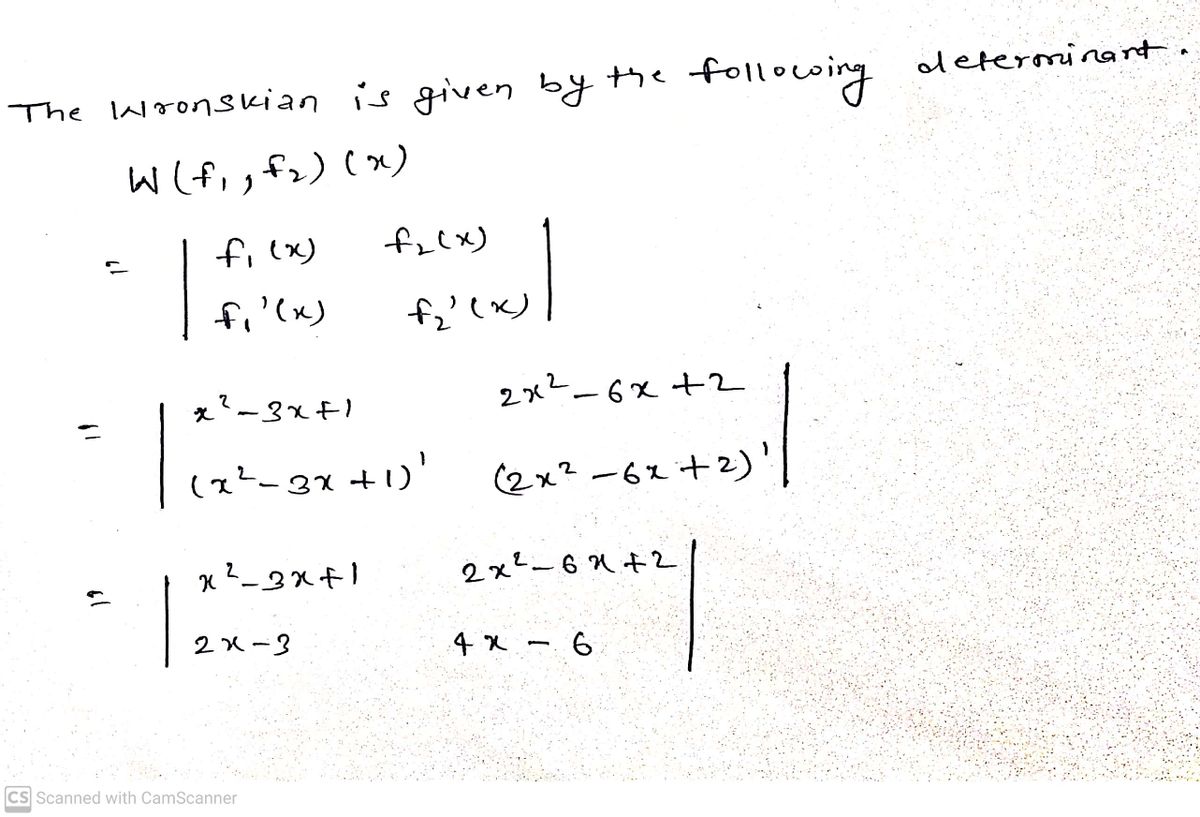 The Wronskian is given by the following determinant.
W(f₁, f₂)(x)
= | f₁(x) f₂(x) |
| f₁'(x) f₂'(x) |
= | x²-3x+1 2x²-6x+2 |
| (x²-3x+1)' (2x²-6x+2)' |
= | x²-3x+1 2x²-6x+2 |
| 2x-3 4x-6 |
CS Scanned with CamScanner